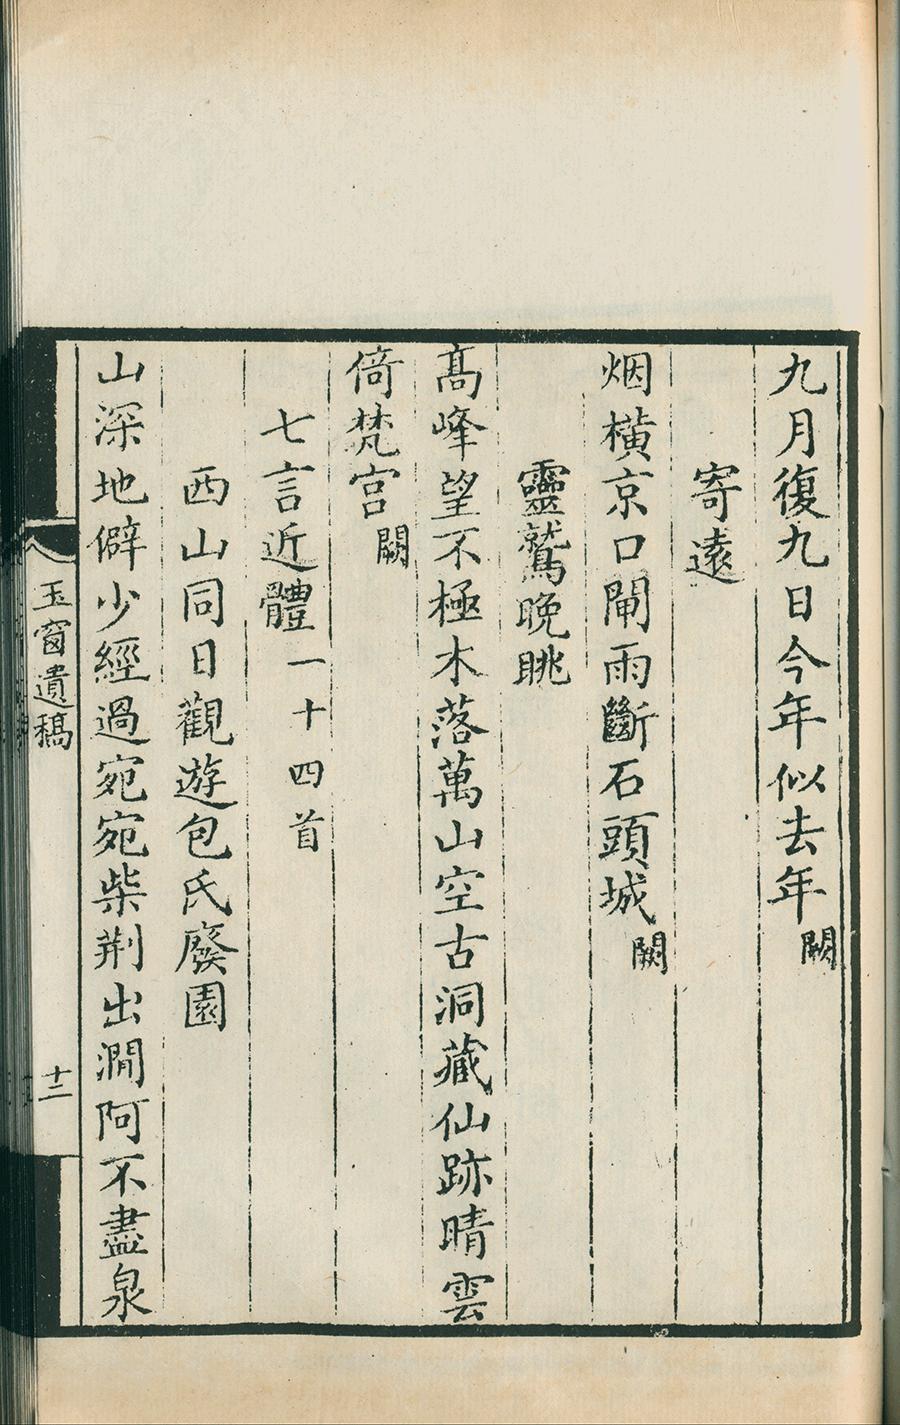 九月復九日今年似去年闕
寄遠
烟橫京口閘雨斷石頭城闕
靈鷲晚眺
髙峰望不極木落萬山空古洞藏仙跡晴雲
倚梵宮闕
七言近體一十四首
西山同日觀遊包氏廢園
山深地僻少經過宛宛柴荆出澗阿不盡泉
玉窗遺稿
十二